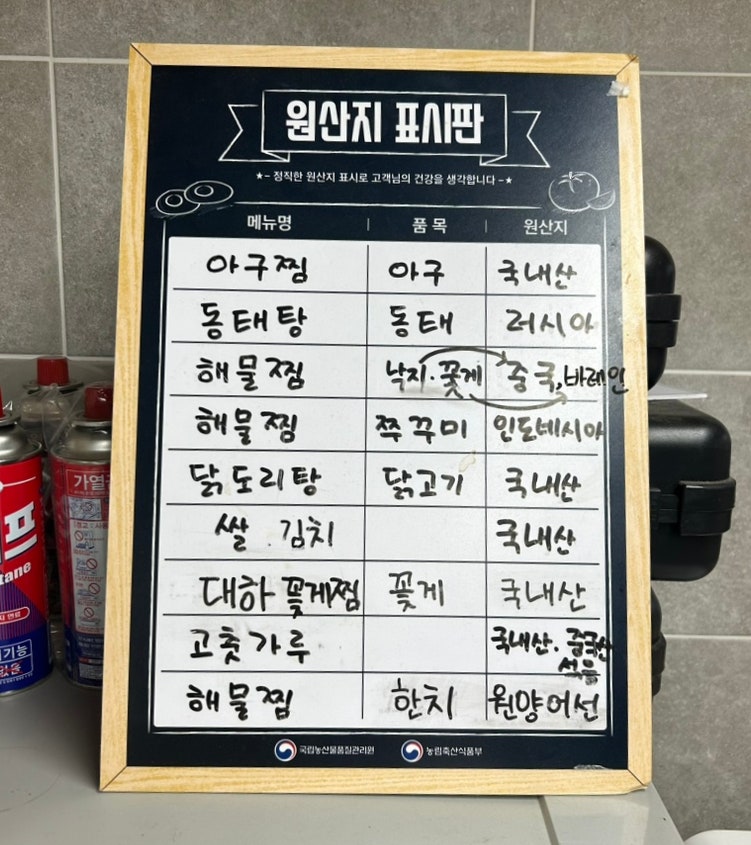 원산지 표시판
★- 정직한 원산지 표시로 고객님의 건강을 생각합니다 -★
메뉴명 품목 원산지
아구찜 아구 국내산
동태탕 동태 러시아
해물찜 낙지.꽃게 중국,바레인
해물찜 쭈꾸미 인도네시아
닭도리탕 닭고기 국내산
쌀.김치 국내산
대하꽃게찜 꽃게 국내산
고춧가루 국내산.중국산
섞음
해물찜 한치 원양어선
국립농산물품질관리원 농림축산식품부
가열
프
tane
기능